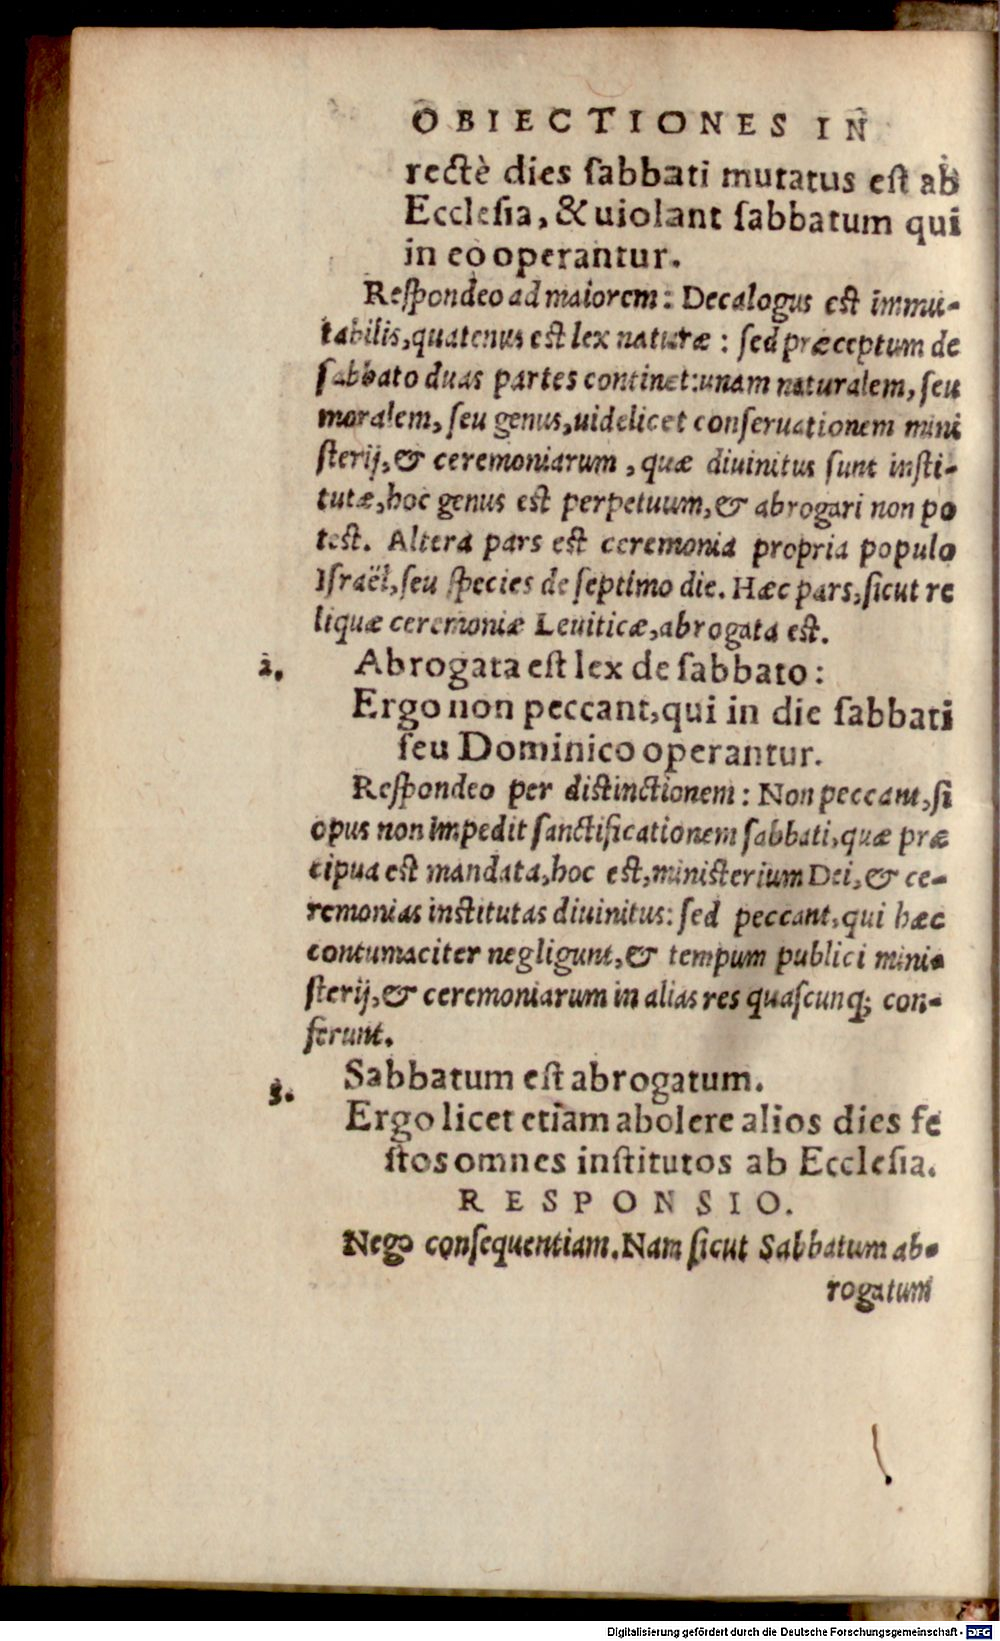 OBIECTIONES IN
rectè dies ſabbati mutatus eſt ab
Eccleſia, & uiolant ſabbatum qui
in eo operantur.
Reſpondeo ad maiorem: Decalogus eſt immu-
tabilis, quatenus eſt lex naturæ: ſed præceptum de
ſabbato duas partes continet: unam naturalem, ſeu
moralem, ſeu genus, uidelicet conſeruationem mini
ſterij, & ceremoniarum, quæ diuinitus ſunt inſti-
tutæ, hoc genus eſt perpetuum, & abrogari non po
teſt. Altera pars eſt ceremonia propria populo
Iſraël, ſeu ſpecies de ſeptimo die. Hæc pars, ſicut re
liquæ ceremoniæ Leuiticæ, abrogata eſt.
2. Abrogata eſt lex de ſabbato:
Ergo non peccant, qui in die ſabbati
ſeu Dominico operantur.
Reſpondeo per diſtinctionem: Non peccant, ſi
opus non impedit ſanctificationem ſabbati, quæ præ
cipua eſt mandata, hoc eſt, miniſterium Dei, & ce-
remonias inſtitutas diuinitus: ſed peccant, qui hæc
contumaciter negligunt, & tempum publici mini-
ſterij, & ceremoniarum in alias res quaſcunq; con-
ferunt.
3. Sabbatum eſt abrogatum.
Ergo licet etiam abolere alios dies fe
ſtos omnes inſtitutos ab Eccleſia.
RESPONSIO.
Nego conſequentiam. Nam ſicut Sabbatum ab-
rogatum
Digitalisierung gefördert durch die Deutsche Forschungsgemeinschaft - DFG